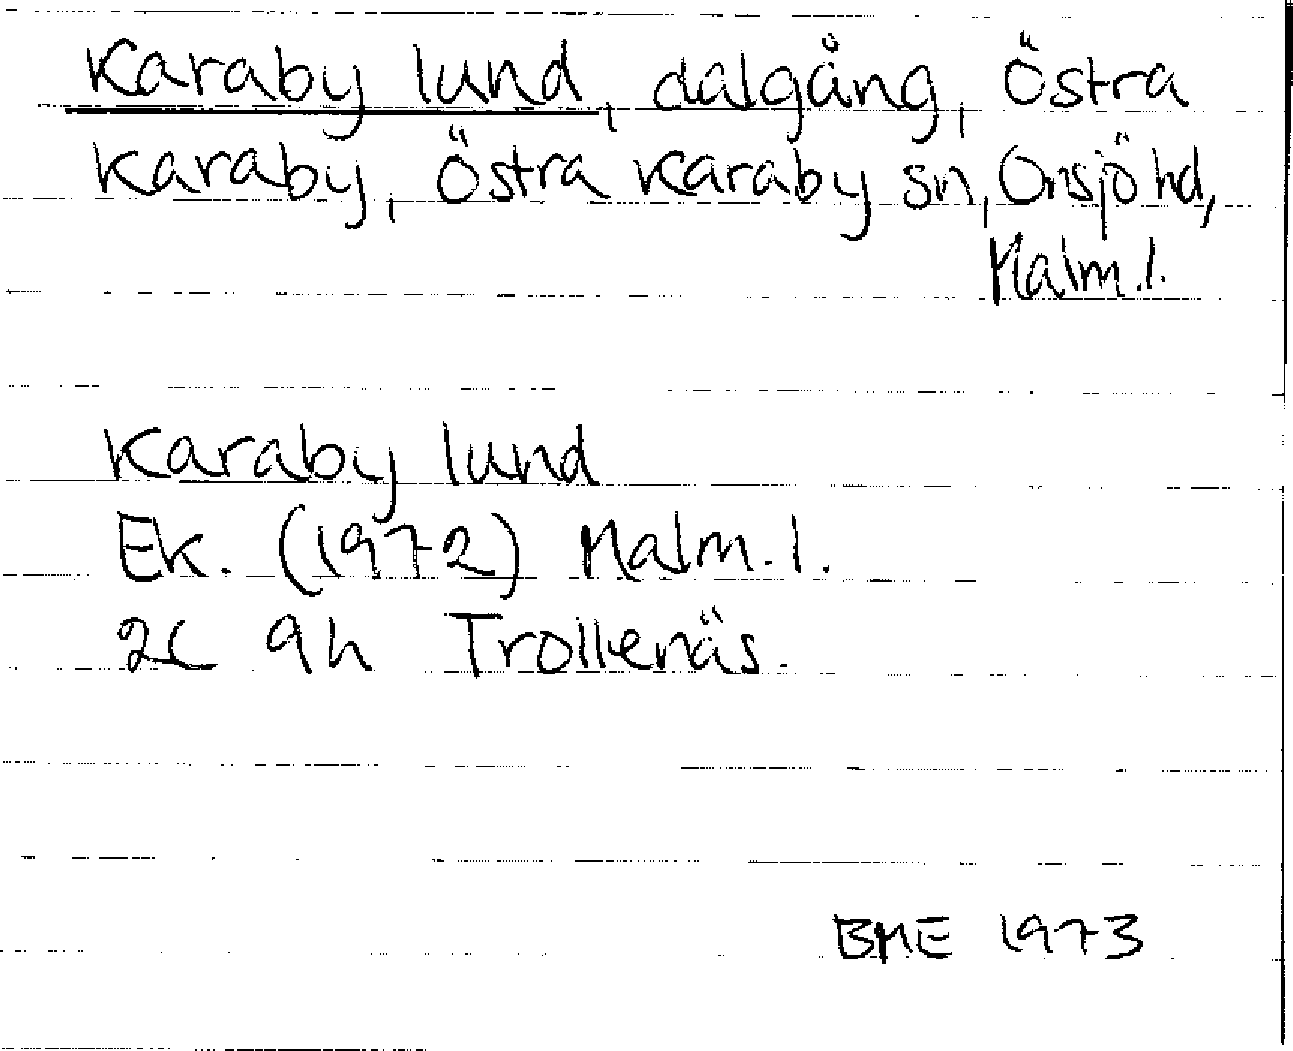 Karaby lund, dalgång, Östra
Karaby, Östra Karaby sn, Onsjö hd,
Malm.l.
Karaby lund
Ek. (1972) Malm.l.
2C 9h Trollenäs.
BME 1973